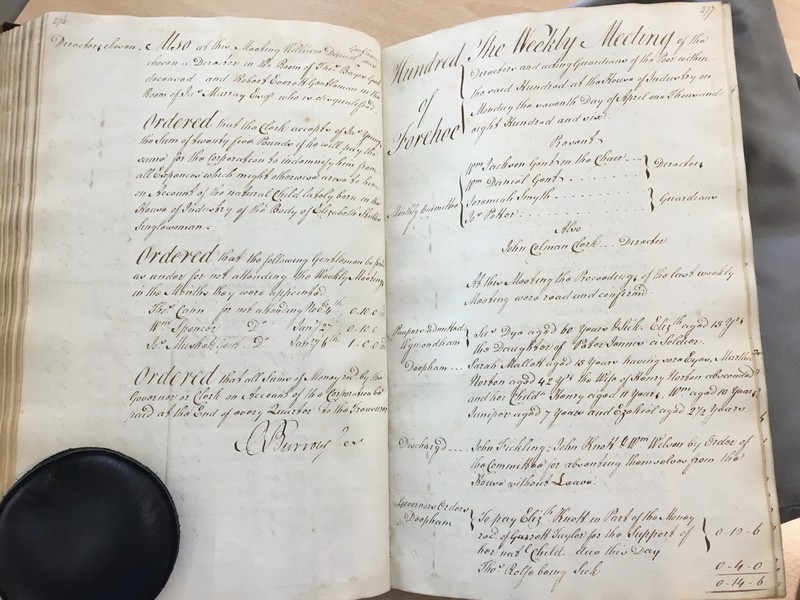 276
Directors chosen. Also at this Meeting William Daniel Gent. was
chosen a Director in the Room of Thos. Bayon Gent
deceased and Robert Everett Gentleman in the
Room of Jas. Murray Esqr. who is disqualified.
Ordered that the Clerk accepts of Jas.
the Sum of twenty five Pounds if he will pay the
same for the Corporation to indemnify him from
all Expences which might otherwise arise to him
on Account of the natural Child lately born in the
House of Industry of the Body of Elizabeth
Singlewoman.
Ordered that the following Gentlemen be fined
as under for not attending the Weekly Meetings
in the Months they were appointed
Thos. Cann for not attending Novr. 4th. 0-10-0
Wm. Spencer Do. Jany. 27 0-10-0
Jos. Muskett Gent. Do. Jany. 6th 1-0-0
Ordered that all Sums of Money recd. by the
Governor or Clerk on Account of the Corporation be
paid at the End of every Quarter to the Treasurer
277
Hundred of Forehoe
The Weekly Meeting of the
Directors and acting Guardians of the Poor within
the said Hundred at the House of Industry on
Monday the seventh Day of April one Thousand
eight Hundred and six.
Present
Monthly Committee
Wm. Jackson Gent. in the Chair
Wm. Daniel Gent.
Directors
Jeremiah Smyth
Jos. Potter
Guardians
Also
John Colman Clerk Director
At this Meeting the Proceedings of the last weekly
Meeting were read and confirmed.
Paupers admitted
Wymondham
Jas. Dye aged 60 Years & Sick. Elizth. aged 13 Yrs.
the Daughter of Peter Jonnes a Soldier.
Deopham Sarah Mallett aged 13 Years having sore Eyes, Martha
Norton aged 42 Yrs. the Wife of Henry Norton absconded
and her Childn. Henry aged 11 Years, Wm. aged 10 Years
Juniper aged 7 Years and Ezekiel aged 2 1/2 Years
Dischargd. John Tickling, John Knott & Wm. Welson by Order of
the Committee for absenting themselves from the
House without Leave.
Governors Orders
Deopham
To pay Elizth. Knott in Part of the Money
recd. of Garrett Taylor for the Support of
her natl. Child due this Day
0-10-6
Thos. Rolfe being Sick 0-4-0
0-14-6